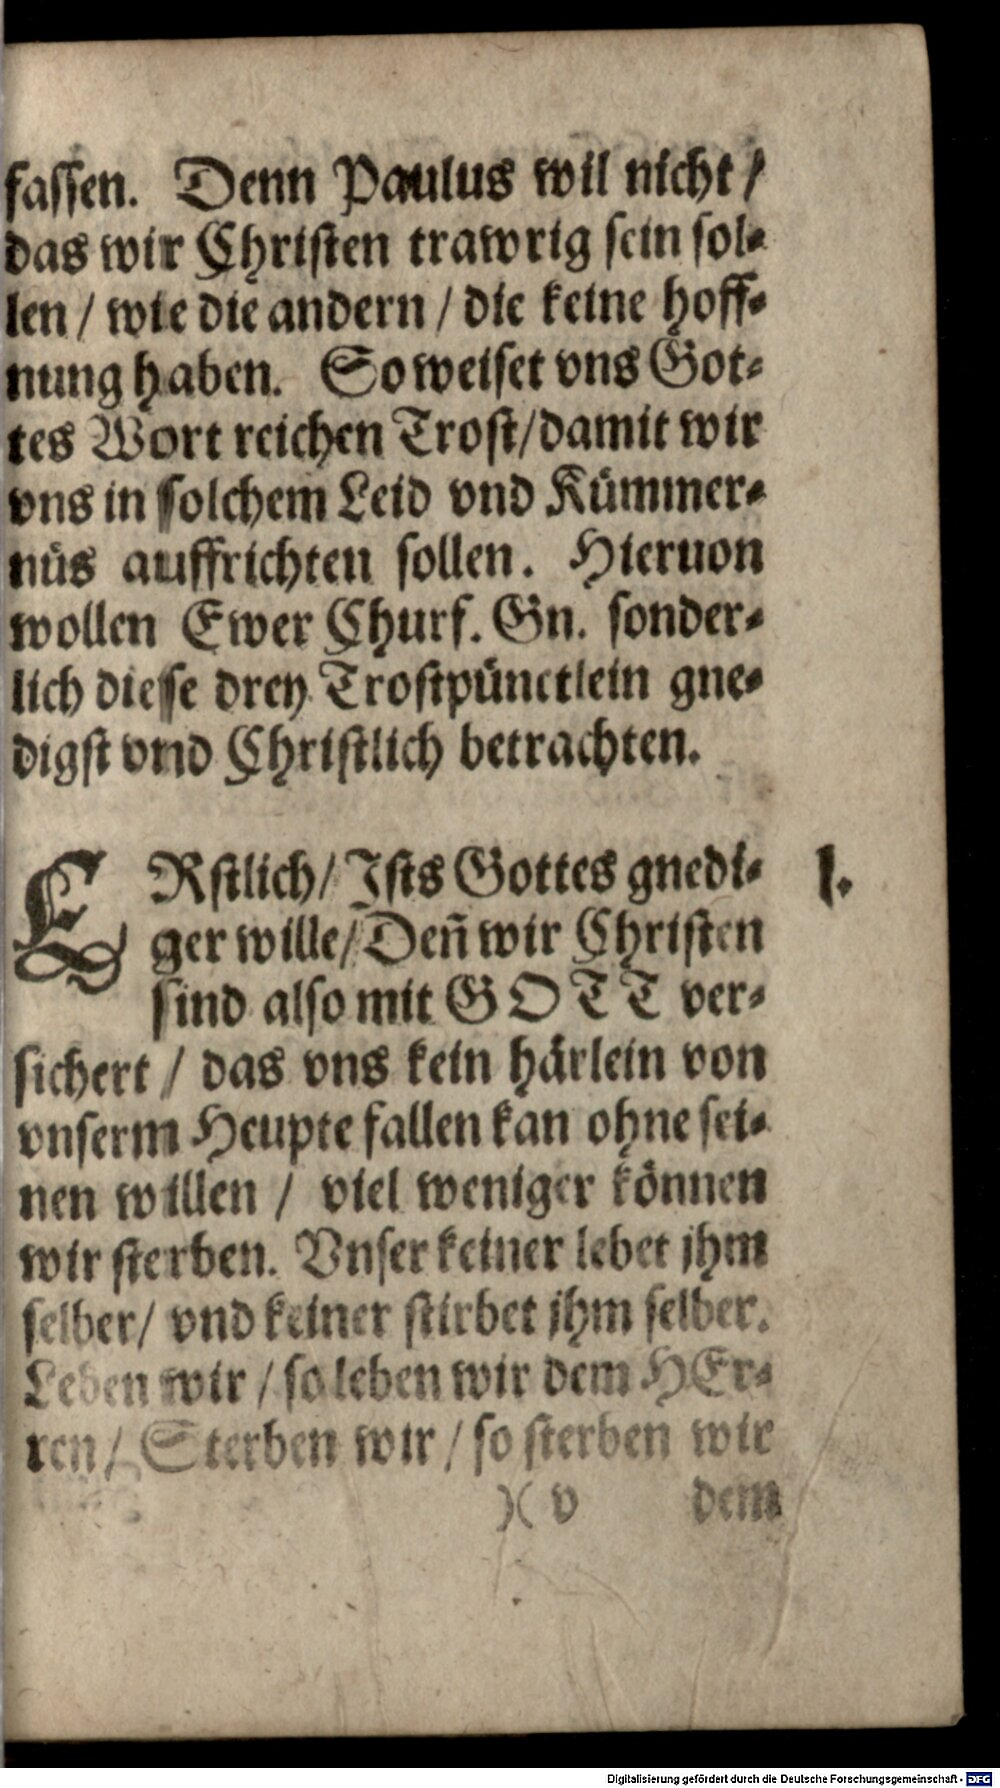 fassen. Denn Paulus wil nicht /
das wir Christen trawrig sein sol-
len / wie die andern / die keine hoff-
nung haben. So weiset vns Got-
tes Wort reichen Trost / damit wir
vns in solchem Leid vnd Kümmer-
nüs auffrichten sollen. Hieruon
wollen Ewer Churf. Gn. sonder-
lich diesse drey Trostpünctlein gne-
digst vnd Christlich betrachten.
ERstlich / Ists Gottes gnedi- I.
ger wille / Deñ wir Christen
sind also mit GOTT ver-
sichert / das vns kein härlein von
vnserm Heupte fallen kan ohne sei-
nen willen / viel weniger können
wir sterben. Vnser keiner lebet jhm
selber / vnd keiner stirbet jhm selber.
Leben wir / so leben wir dem HEr-
ren / Sterben wir / so sterben wir
)( v dem
Digitalisierung gefördert durch die Deutsche Forschungsgemeinschaft - DFG